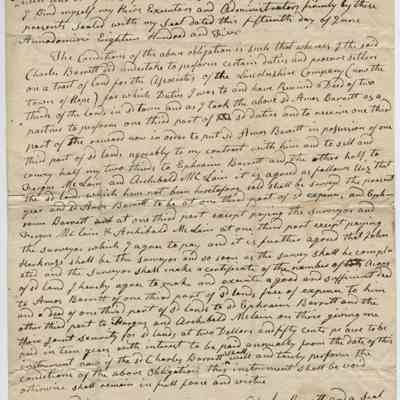 I Bind myself my Heirs Executors and Administrators firmly by these
presents, sealed with my Seal dated this fifteenth day of June
Annodomini Eighteen Hundred and
The Conditions of the above obligation is such that whereas I the said
Charles Barrett did undertake to perform certain duties and possess settlers
on a tract of land for the Associates of the Lincolnshire Company (now the
town of Hope) for which Duties I was to and have received a Deed of two
thirds of the lands in sd town and as I took the above sd Amos Barrett as a
partner to perform one third part of sd duties and to receive one third
part of the reward now in order to put sd Amos Barrett in possession of one
third part of sd lands agreeably to my contract with him and to sell and
convey half my two thirds to Ephraim Barrett and the other half to
Fergus McLain and Archibald McLain it is agreed as follows Viz that
the sd lands which have not been heretofore sold shall be survey'd the present
year and sd Amos Barrett to be at one third part of sd expence, and Eph-
raim Barrett at one third part except paying the Surveyor and
Fergus McLain & Archibald McLain at one third part except paying
the surveyor which I agree to pay and it is further agreed that John
shall be the surveyor and so soon as the survey shall be compleat-
ed and the surveyor shall make a certificate of the number of Acres
of sd land, I hereby agree to make and execute a good and sufficient deed
to Amos Barrett of one third part of sd lands free of expence to him
and a deed of one third part of sd lands to sd Ephraim Barrett and the
other third part to Fergus and Archibald McLain on those giving me
there Joint security for sd lands at two Dollars and fifty cents pr acre to be
paid in ten years with interest to be paid annually from the date of this
instrument now if the sd Charles Barrett shall well and truly perform the
conditions of the above Obligation this instrument shall be void
otherwise shall remain in full force and virtue